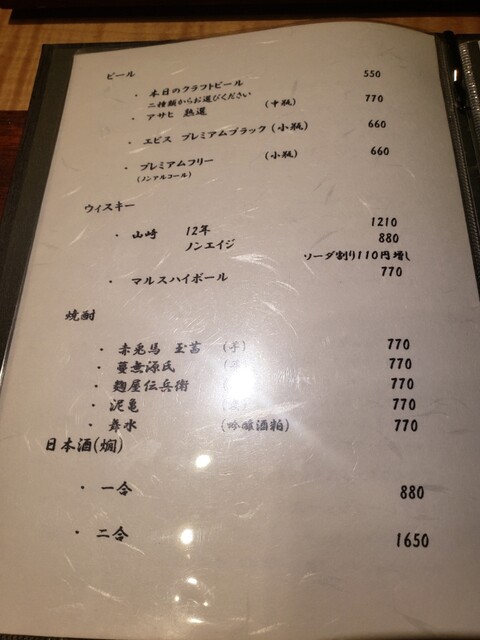 ビール 550
・ 本日のクラフトビール
二種類からお選びください
・ アサヒ 熟選 (中瓶) 770
・ エビス プレミアムブラック (小瓶) 660
・ プレミアムフリー (小瓶) 660
(ノンアルコール)
ウィスキー
・ 山崎 12年 1210
ノンエイジ 880
ソーダ割り110円増し
・ マルスハイボール 770
焼酎
・ 赤兎馬 玉茜 (芋) 770
・ 蔓無源氏 770
・ 麹屋伝兵衛 770
・ 泥亀 770
・ 舞水 (吟醸酒粕) 770
日本酒(燗)
・ 一合 880
・ 二合 1650